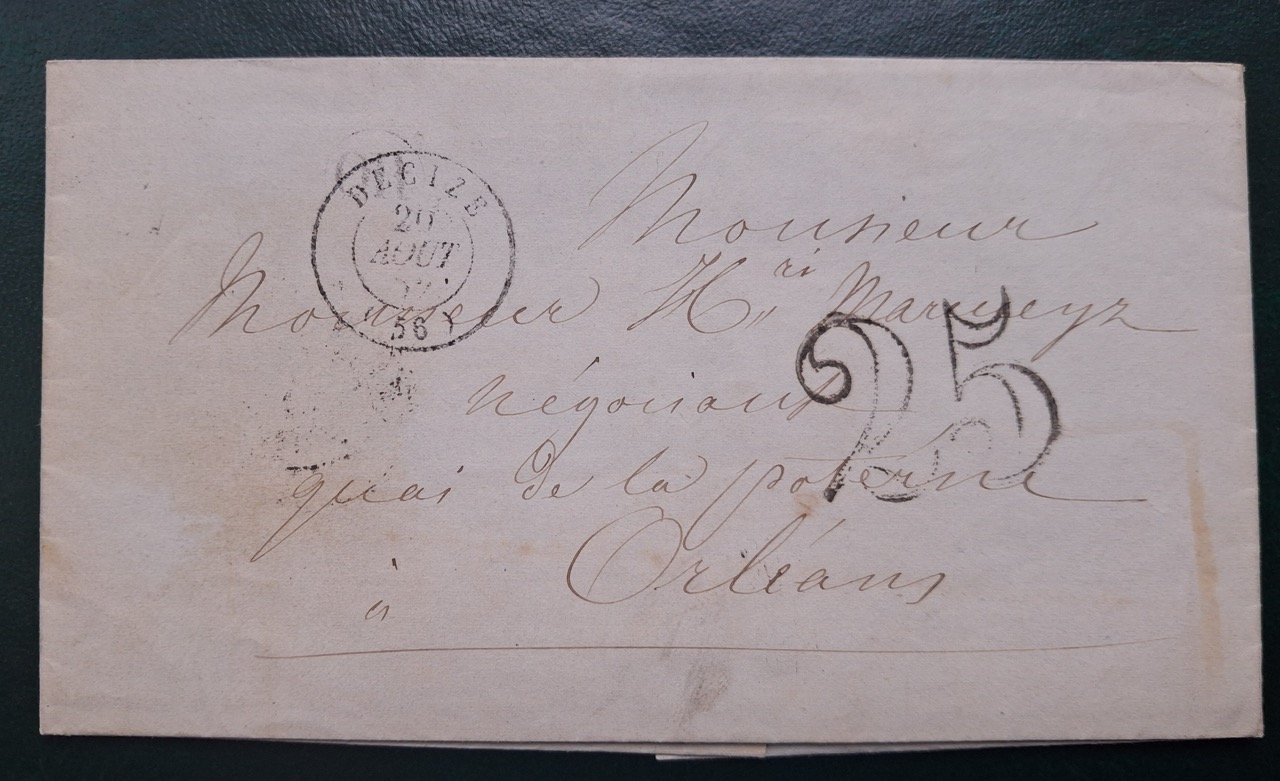 DECIZE
20
AOUT
(56)
Monsieur
Monsieur Hri
négociant
25
quai de la poterne
à Orléans